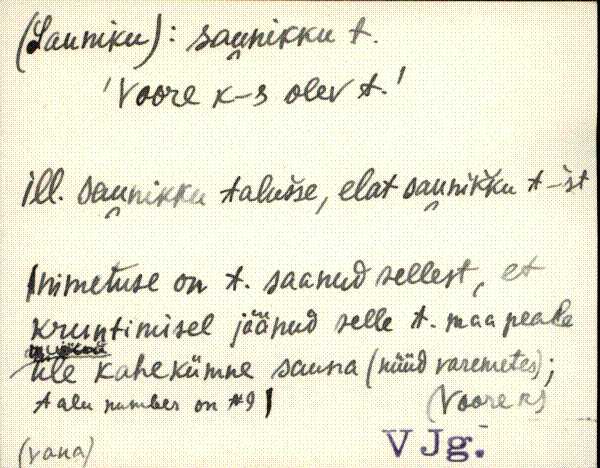 (Sauniku): sau̯nikku t.
'Voore k-s olev t.'
ill. sau̯nikku talušse, elat sau̯nikku t-st
Nimetuse on t. saanud sellest, et
kruntimisel jäänud selle t. maa peale
üle kahekümne sauna (nüüd varemetes);
talu number on №9 (Voore k)
(vana)
VJg.